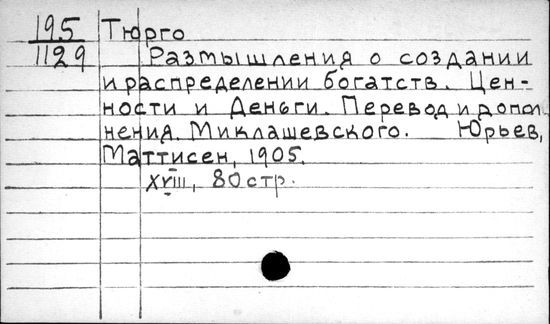 195 Тюрго
1129 Размышления о создании
и распределении богатств. Цен-
ности и Деньги. Перевод и допол
нения. Миклашевского. Юрьев,
Маттисен, 1905.
XVIII, 80 стр.